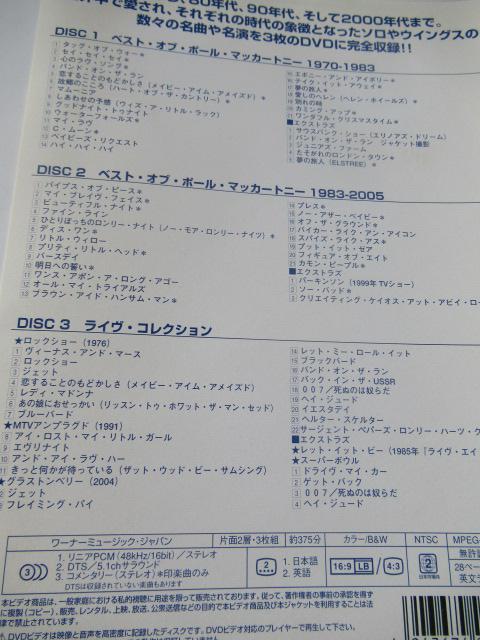 、80年代、90年代、そして2000年代まで。
界中で愛され、それぞれの時代の象徴となったソロやウイングスの
数々の名曲や名演を3枚のDVDに完全収録!!
DISC 1 ベスト・オブ・ポール・マッカートニー 1970-1983
1 タッグ・オブ・ウォー＊
2 セイ・セイ・セイ＊
3 心のラヴ・ソング＊
4 バンド・オン・ザ・ラン
5 恋することのもどかしさ（メイビー・アイム・アメイズド）＊
6 故郷のこころ（ハート・オブ・ザ・カントリー）＊
7 マムーニア
8 しあわせの予感（ウィズ・ア・リトル・ラック）
9 グッドナイト・トゥナイト
10 ウォーターフォールズ＊
11 マイ・ラヴ
12 C・ムーン＊
13 ベイビーズ・リクエスト
14 ハイ・ハイ・ハイ
15 エボニー・アンド・アイボリー＊
16 テイク・イット・アウェイ＊
17 夢の旅人＊
18 愛しのヘレン（ヘレン・ホイールズ）＊
19 別れの時
20 カミング・アップ＊
21 ワンダフル・クリスマスタイム＊
■エクストラズ
1 サウスバンク・ショー（エリノアズ・ドリーム）
2 バンド・オン・ザ・ラン ジャケット撮影
3 ジュニアズ・ファーム
4 たそがれのロンドン・タウン＊
5 夢の旅人（ELSTREE）＊
DISC 2 ベスト・オブ・ポール・マッカートニー 1983-2005
1 パイプス・オブ・ピース＊
2 マイ・ブレイヴ・フェイス＊
3 ビューティフル・ナイト＊
4 ファイン・ライン
5 ひとりぼっちのロンリー・ナイト（ノー・モア・ロンリー・ナイツ）＊
6 ディス・ワン＊
7 リトル・ウィロー
8 プリティ・リトル・ヘッド＊
9 バースデイ
10 明日への誓い＊
11 ワンス・アポン・ア・ロング・アゴー
12 オール・マイ・トライアルズ
13 ブラウン・アイド・ハンサム・マン＊
14 プレス＊
15 ノー・アザー・ベイビー＊
16 オフ・ザ・グラウンド＊
17 バイカー・ライク・アン・アイコン
18 スパイズ・ライク・アス＊
19 プット・イット・ゼア
20 フィギュア・オブ・エイト
21 カモン・ピープル＊
■エクストラズ
1 パーキンソン（1999年TVショー）
2 ソー・バッド＊
3 クリエイティング・ケイオス・アット・アビイ・ロー
DISC 3 ライヴ・コレクション
★ロックショー（1976）
1 ヴィーナス・アンド・マース
2 ロックショー
3 ジェット
4 恋することのもどかしさ（メイビー・アイム・アメイズド）
5 レディ・マドンナ
6 あの娘におせっかい（リッスン・トゥ・ホワット・ザ・マン・セッド）
7 ブルーバード
★MTVアンプラグド（1991）
8 アイ・ロスト・マイ・リトル・ガール
9 エヴリナイト
10 アンド・アイ・ラヴ・ハー
11 きっと何かが待っている（ザット・ウッド・ビー・サムシング）
★グラストンベリー（2004）
12 ジェット
13 フレイミング・パイ
14 レット・ミー・ロール・イット
15 ブラックバード
16 バンド・オン・ザ・ラン
17 バック・イン・ザ・USSR
18 007/死ぬのは奴らだ
19 ヘイ・ジュード
20 イエスタデイ
21 ヘルター・スケルター
22 サージェント・ペパーズ・ロンリー・ハーツ・ク
■エクストラズ
★レット・イット・ビー（1985年「ライヴ・エイ
★スーパーボウル
1 ドライヴ・マイ・カー
2 ゲット・バック
3 007/死ぬのは奴らだ
4 ヘイ・ジュード
ワーナーミュージック・ジャパン 片面2層・3枚組 約375分 カラー/B&W NTSC MPEG-
3 1. リニアPCM（48kHz/16bit）/ステレオ
2. DTS/5.1chサラウンド
3. コメンタリー（ステレオ）＊印楽曲のみ
DTSは収録されていない楽曲もあります
2 1. 日本語
2. 英語
16:9 LB / 4:3
2 日本市場向
無許諾
28ペー
英文ラ
本ビデオ商品は、一般家庭における私的視聴に用途を限って販売されております。従って、著作権者の承諾を得ずに
複製（コピー）、販売、レンタル、上映、放送、公衆送信などの目的で本商品及び本ジャケットを利用することは
法律で禁止されています。
DVDビデオは映像と音声を高密度に記録したディスクです。DVDビデオ対応のプレイヤーで再生して下さい。